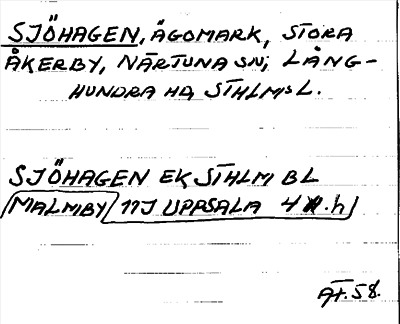 SJÖHAGEN, ÄGOMARK, STORA
ÅKERBY, NÄRTUNA SN, LÅNG-
HUNDRA HD, STHLMS L.
SJÖHAGEN EK STHLM BL
MALMBY 11J UPPSALA 4 .h
AT. 58.